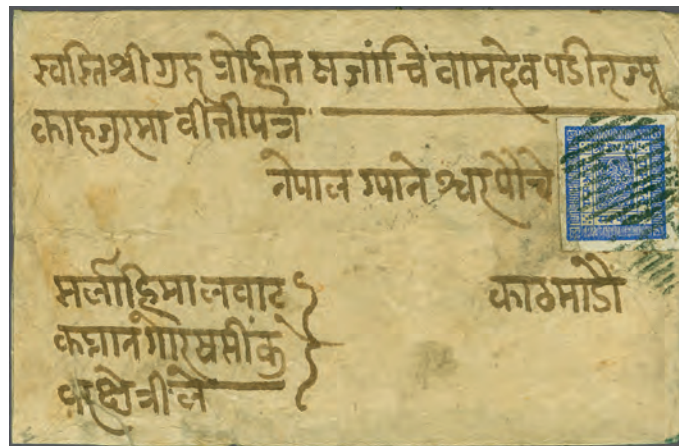 स्वस्तिश्री गुरु प्रोहीत षजांचि वामदेव पडीतज्यू
का हजुरमा वीन्तीपत्र
नेपाल ग्याने श्वर पौंचे
सर्लाहि माल वाट
काठमांडौ
कप्तान गोरष सीं कु
क्षेत्रीले